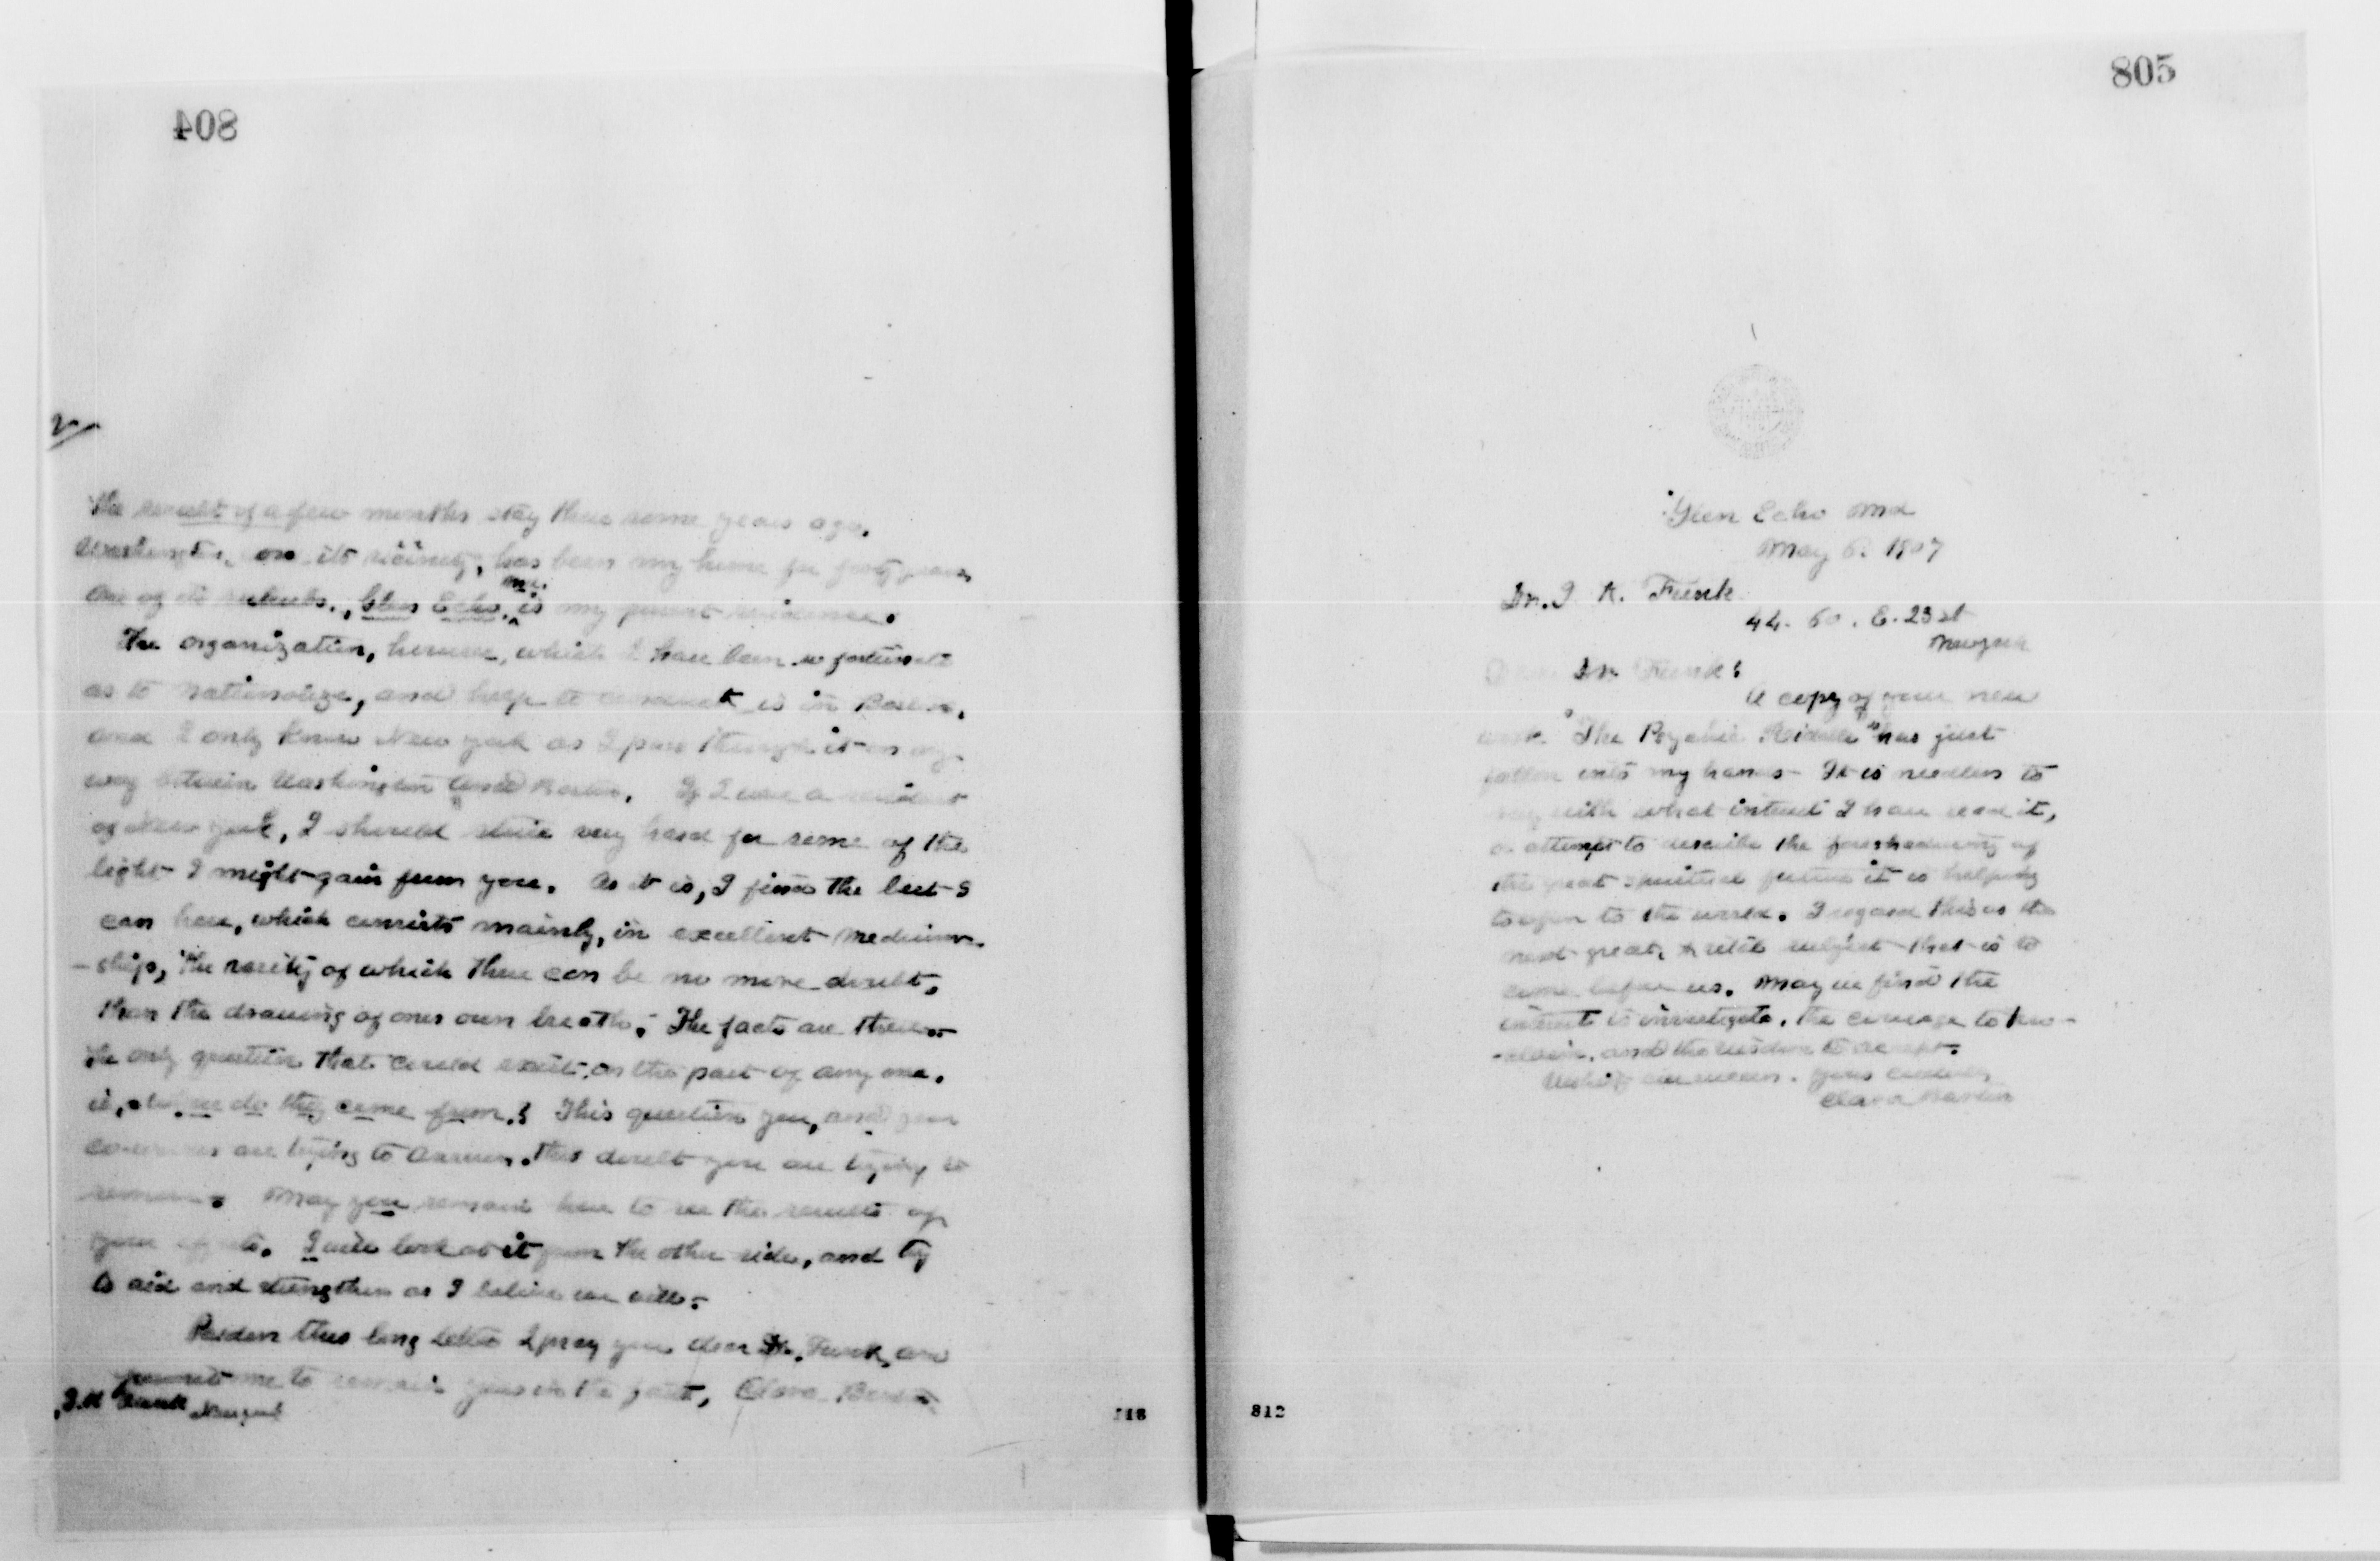 804
2/
the result of a few months stay there some years ago.
Washington, or its vicinity, has been my home for forty years,
One of its suburbs, Glen Echo, Md. is my present residence.
The organization, however, which I have been so fortunate
as to nationalize, and help to conduct is in Boston,
and I only know New York as I pass through it on my
way between Washington and Boston. If I were a resident
of New York, I should strive very hard for some of the
light I might gain from you. As it is, I find the best I
can here, which consists mainly, in excellent medium-
-ship, the verity of which there can be no more doubt,
than the drawing of ones own breath. The facts are there
the only question that could exist, on the part of any one,
is, where do they come from? This question you, and your
co-workers are trying to answer. This doubt you are trying to
remove. May you remain here to see the results of
your efforts. I will look at it from the other side, and try
to aid and strengthen as I believe we will.
Pardon this long letter I pray you dear Dr. Funk, and
permit me to remain yours in the faith, Clara Barton
I. K Funk New York
118
805
Glen Echo Md
May 6. 1907
Dr. I K. Funk
44-60. E. 23 st
New York
Dear Dr. Funk:
A copy of your new
work "The Psychic Riddle" has just
fallen into my hands - It is needless to
say with what interest I have read it,
or attempt to describe the foreshadowing of
the great spiritual future it is helping
to open to the world. I regard this as the
most great, & vital subject that is to
come before us. May we find the
interest to investigate, the courage to pro-
-claim, and the wisdom to accept.
Yours cordially
Clara Barton
812